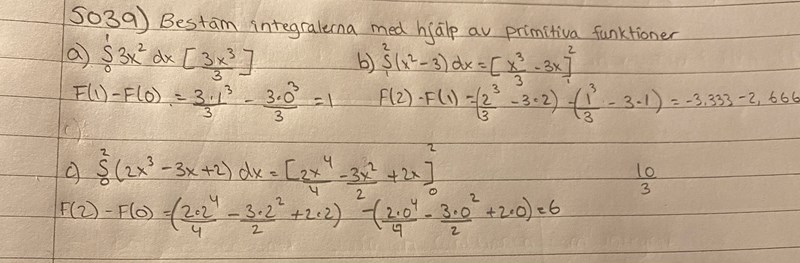 5039) Bestäm integralerna med hjälp av primitiva funktioner
a) ∫₀¹ 3x² dx [3x³/3] b) ∫₁² (x²-3) dx = [x³/3 - 3x]₁²
F(1)-F(0) = 3·1³/3 - 3·0³/3 = 1 F(2)-F(1) = (2³/3 - 3·2) - (1³/3 - 3·1) = -3,333-2,666
c) ∫₀² (2x³ - 3x + 2) dx = [2x⁴/4 - 3x²/2 + 2x]₀² 10/3
F(2)-F(0) = (2·2⁴/4 - 3·2²/2 + 2·2) - (2·0⁴/4 - 3·0²/2 + 2·0) = 6